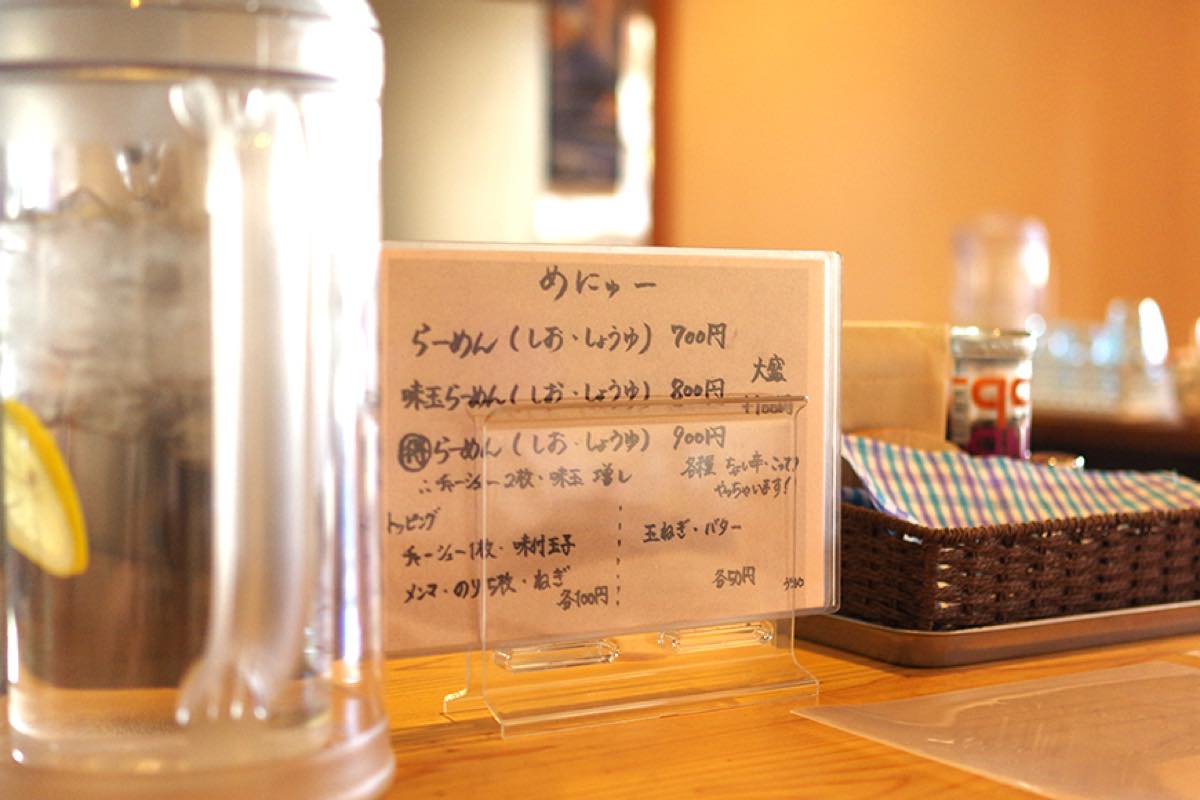 めにゅー
らーめん(しお・しょうゆ) 700円
味玉らーめん(しお・しょうゆ) 800円
大盛
+100円
得らーめん(しお・しょうゆ) 900円
∴チャーシュー2枚・味玉 増し
各種
やっちゃいます!
トッピング
チャーシュー1枚・味付玉子
メンマ・のり5枚・ねぎ
各100円
玉ねぎ・バター
各50円